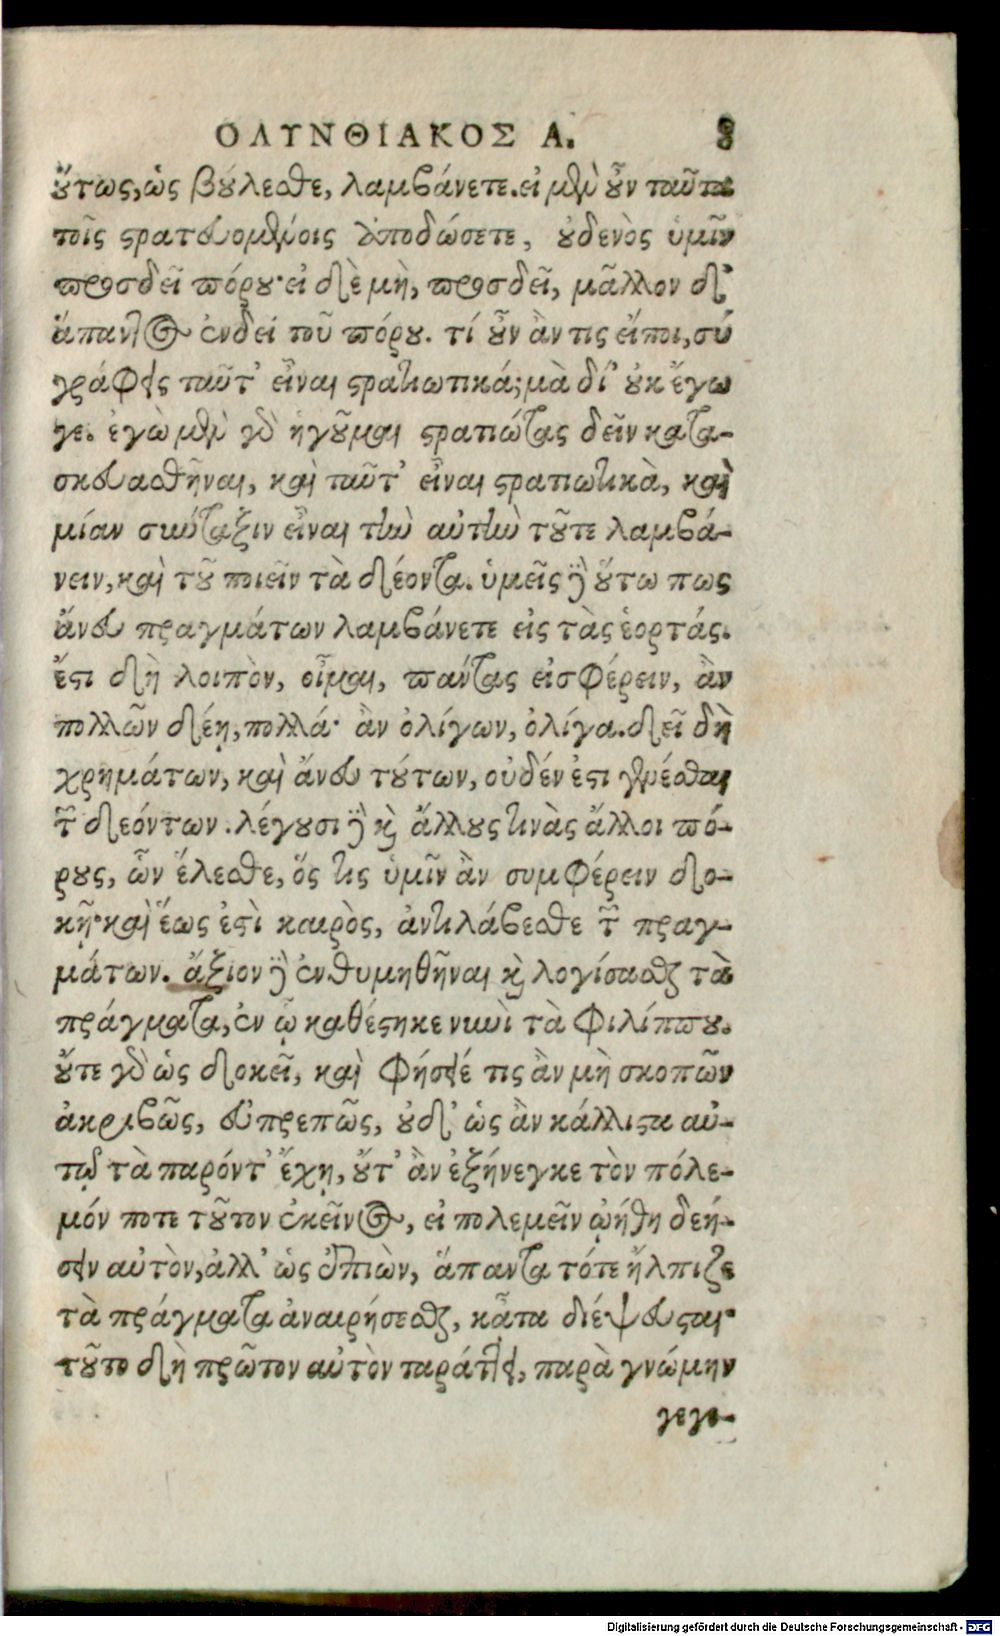 ΟΛΥΝΘΙΑΚΟΣ Α. 8
οὕτως, ὡς βούλεσθε, λαμβάνετε. εἰ μὲν οὖν ταῦτα
τοῖς στρατευομένοις ἀποδώσετε, οὐδενὸς ὑμῖν
προσδεῖ πόρου· εἰ δὲ μὴ, προσδεῖ, μᾶλλον δ'
ἅπαντος ἐνδεῖ τοῦ πόρου. τί οὖν ἄν τις εἴποι, σύ
γράφεις ταῦτ' εἶναι στρατιωτικά; μὰ δί' οὐκ ἔγω
γε. ἐγὼ μὲν γὰρ ἡγοῦμαι στρατιώτας δεῖν κατα-
σκευασθῆναι, καὶ ταῦτ' εἶναι στρατιωτικὰ, καὶ
μίαν σύνταξιν εἶναι τὴν αὐτὴν τοῦτε λαμβά-
νειν, καὶ τοῦ ποιεῖν τὰ δέοντα. ὑμεῖς δὲ οὕτω πως
ἄνευ πραγμάτων λαμβάνετε εἰς τὰς ἑορτάς.
ἔστι δὴ λοιπὸν, οἶμαι, πάντας εἰσφέρειν, ἂν
πολλῶν δέῃ, πολλά· ἂν ὀλίγων, ὀλίγα. δεῖ δὴ
χρημάτων, καὶ ἄνευ τούτων, οὐδέν ἐστι γενέσθαι
τῶν δεόντων. λέγουσι δὲ καὶ ἄλλους τινὰς ἄλλοι πό-
ρους, ὧν ἕλεσθε, ὅς τις ὑμῖν ἂν συμφέρειν δο-
κῇ· καὶ ἕως ἐστὶ καιρὸς, ἀντιλάβεσθε τῶν πραγ-
μάτων. ἄξιον δὲ ἐνθυμηθῆναι καὶ λογίσασθαι τὰ
πράγματα, ἐν ᾧ καθέστηκε νυνὶ τὰ Φιλίππου.
οὔτε γὰρ ὡς δοκεῖ, καὶ φήσειέ τις ἂν μὴ σκοπῶν
ἀκριβῶς, εὐπρεπῶς, οὐδ' ὡς ἂν κάλλιστα αὐ-
τῷ τὰ παρόντ' ἔχῃ, οὔτ' ἂν ἐξήνεγκε τὸν πόλε-
μόν ποτε τοῦτον ἐκεῖνος, εἰ πολεμεῖν ᾠήθη δεή-
σειν αὐτὸν, ἀλλ' ὡς ἐπιὼν, ἅπαντα τότε ἤλπιζε
τὰ πράγματα ἀναιρήσεσθαι, κᾆτα διέψευσται·
τοῦτο δὴ πρῶτον αὐτὸν ταράττει, παρὰ γνώμην
γεγο-
Digitalisierung gefördert durch die Deutsche Forschungsgemeinschaft - DFG